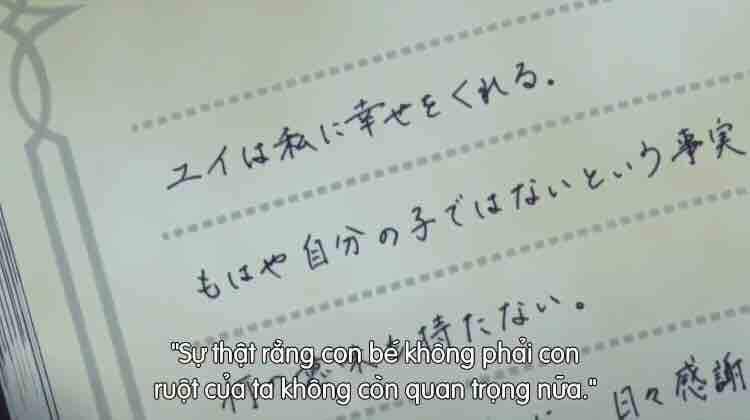 ユイは私に幸せをくれる。
もはや自分の子ではないという事実
持たない。
"Sự thật rằng con bé không phải con
ruột của ta không còn quan trọng nữa."
日々感謝